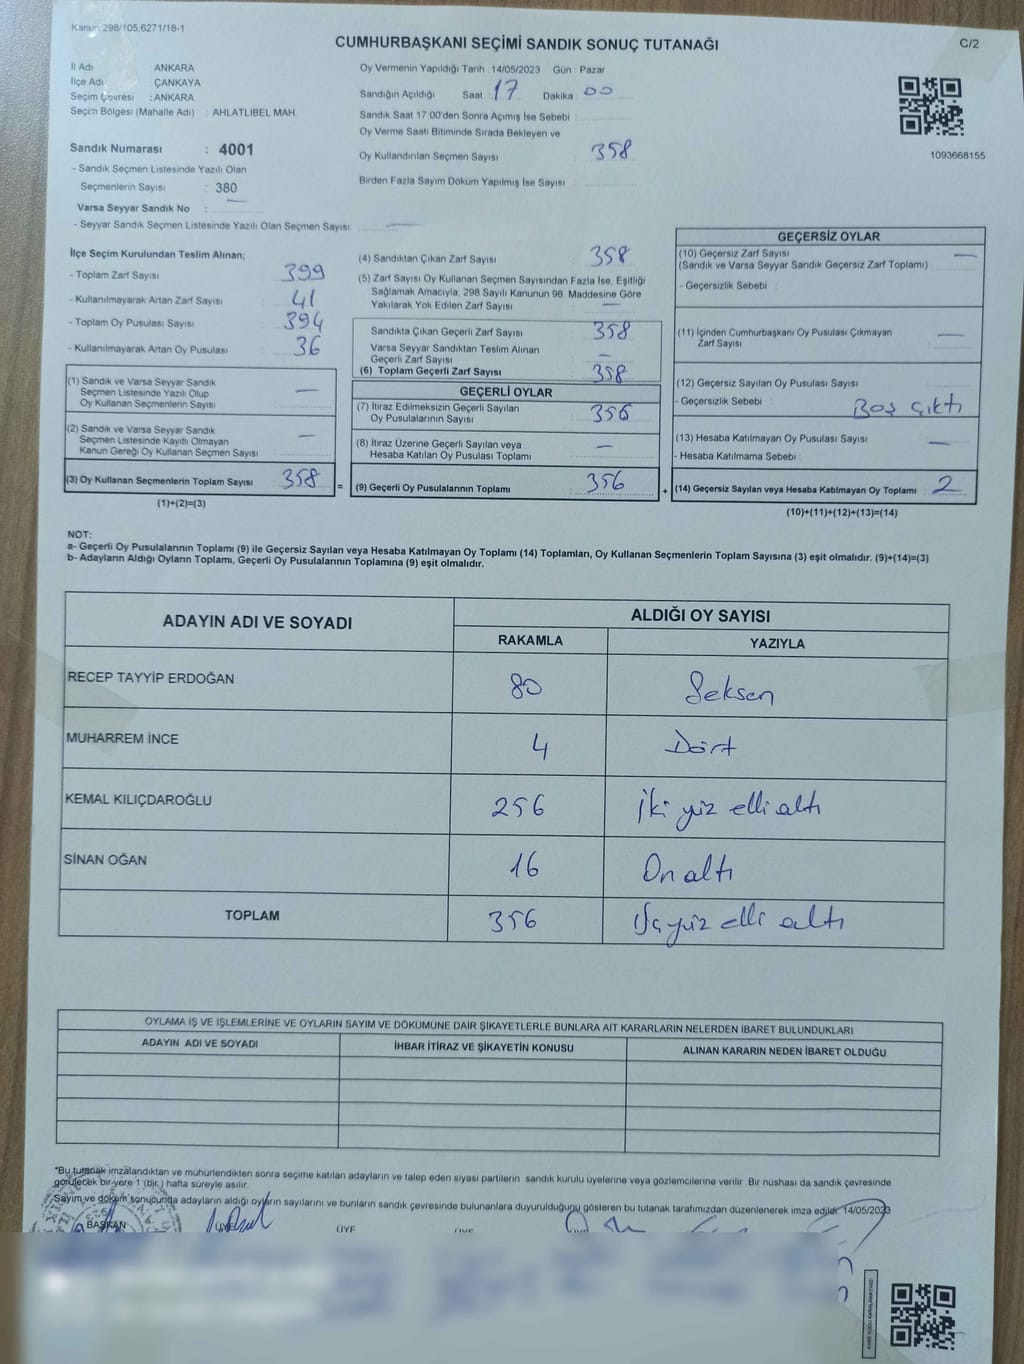 Kanun 298/105,6271/18-1
CUMHURBAŞKANI SEÇİMİ SANDIK SONUÇ TUTANAĞI
C/2
İl Adı : ANKARA
İlçe Adı : ÇANKAYA
Seçim Çevresi : ANKARA
Seçim Bölgesi (Mahalle Adı) : AHLATLIBEL MAH
Sandık Numarası : 4001
- Sandık Seçmen Listesinde Yazılı Olan
Seçmenlerin Sayısı : 380
Varsa Seyyar Sandık No :
- Seyyar Sandık Seçmen Listesinde Yazılı Olan Seçmen Sayısı
Oy Vermenin Yapıldığı Tarih : 14/05/2023 Gün : Pazar
Sandığın Açıldığı Saat 17 Dakika 00
Sandık Saat 17:00'den Sonra Açımış İse Sebebi :
Oy Verme Saati Bitiminde Sırada Bekleyen ve
Oy Kullandırılan Seçmen Sayısı 358
Birden Fazla Sayım Döküm Yapılmış İse Sayısı :
1093668155
İlçe Seçim Kurulundan Teslim Alınan;
- Toplam Zarf Sayısı : 399
- Kullanılmayarak Artan Zarf Sayısı : 41
- Toplam Oy Pusulası Sayısı : 394
- Kullanılmayarak Artan Oy Pusulası : 36
(1) Sandık ve Varsa Seyyar Sandık
Seçmen Listesinde Yazılı Olup
Oy Kullanan Seçmenlerin Sayısı : —
(2) Sandık ve Varsa Seyyar Sandık
Seçmen Listesinde Kayıtlı Olmayan
Kanun Gereği Oy Kullanan Seçmen Sayısı : —
(3) Oy Kullanan Seçmenlerin Toplam Sayısı : 358
(1)+(2)=(3)
=
(4) Sandıktan Çıkan Zarf Sayısı : 358
(5) Zarf Sayısı Oy Kullanan Seçmen Sayısından Fazla İse, Eşitliği
Sağlamak Amacıyla, 298 Sayılı Kanunun 98. Maddesine Göre
Yakılarak Yok Edilen Zarf Sayısı : —
Sandıkta Çıkan Geçerli Zarf Sayısı : 358
Varsa Seyyar Sandıktan Teslim Alınan
Geçerli Zarf Sayısı : —
(6) Toplam Geçerli Zarf Sayısı : 358
GEÇERLİ OYLAR
(7) İtiraz Edilmeksizin Geçerli Sayılan
Oy Pusulalarının Sayısı : 356
(8) İtiraz Üzerine Geçerli Sayılan veya
Hesaba Katılan Oy Pusulası Toplamı : —
(9) Geçerli Oy Pusulalarının Toplamı : 356
+
GEÇERSİZ OYLAR
(10) Geçersiz Zarf Sayısı —
(Sandık ve Varsa Seyyar Sandık Geçersiz Zarf Toplamı) :
- Geçersizlik Sebebi :
(11) İçinden Cumhurbaşkanı Oy Pusulası Çıkmayan
Zarf Sayısı : —
(12) Geçersiz Sayılan Oy Pusulası Sayısı :
- Geçersizlik Sebebi : Boş çıktı
(13) Hesaba Katılmayan Oy Pusulası Sayısı : —
- Hesaba Katılmama Sebebi :
(14) Geçersiz Sayılan veya Hesaba Katılmayan Oy Toplamı : 2
(10)+(11)+(12)+(13)=(14)
NOT:
a- Geçerli Oy Pusulalarının Toplamı (9) ile Geçersiz Sayılan veya Hesaba Katılmayan Oy Toplamı (14) Toplamları, Oy Kullanan Seçmenlerin Toplam Sayısına (3) eşit olmalıdır. (9)+(14)=(3)
b- Adayların Aldığı Oyların Toplamı, Geçerli Oy Pusulalarının Toplamına (9) eşit olmalıdır.
ADAYIN ADI VE SOYADI
ALDIĞI OY SAYISI
RAKAMLA YAZIYLA
RECEP TAYYİP ERDOĞAN 80 Seksen
MUHARREM İNCE 4 Dört
KEMAL KILIÇDAROĞLU 256 İki yüz elli altı
SİNAN OĞAN 16 On altı
TOPLAM 356 Üç yüz elli altı
OYLAMA İŞ VE İŞLEMLERİNE VE OYLARIN SAYIM VE DÖKÜMÜNE DAİR ŞİKAYETLERLE BUNLARA AİT KARARLARIN NELERDEN İBARET BULUNDUKLARI
ADAYIN ADI VE SOYADI İHBAR İTİRAZ VE ŞİKAYETİN KONUSU ALINAN KARARIN NEDEN İBARET OLDUĞU
*Bu tutanak imzalandıktan ve mühürlendikten sonra seçime katılan adayların ve talep eden siyasi partilerin sandık kurulu üyelerine veya gözlemcilerine verilir. Bir nüshası da sandık çevresinde
görülecek bir yere 1 (bir) hafta süreyle asılır.
Sayım ve döküm sonucunda adayların aldığı oyların sayılarını ve bunların sandık çevresinde bulunanlara duyurulduğunu gösteren bu tutanak tarafımızdan düzenlenerek imza edildi. 14/05/2023
BAŞKAN ÜYE ÜYE